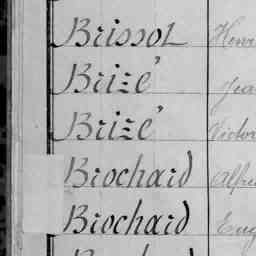 Brissot Henri
Brizé
Brizé Victor
Brochard Alfre
Brochard Eug